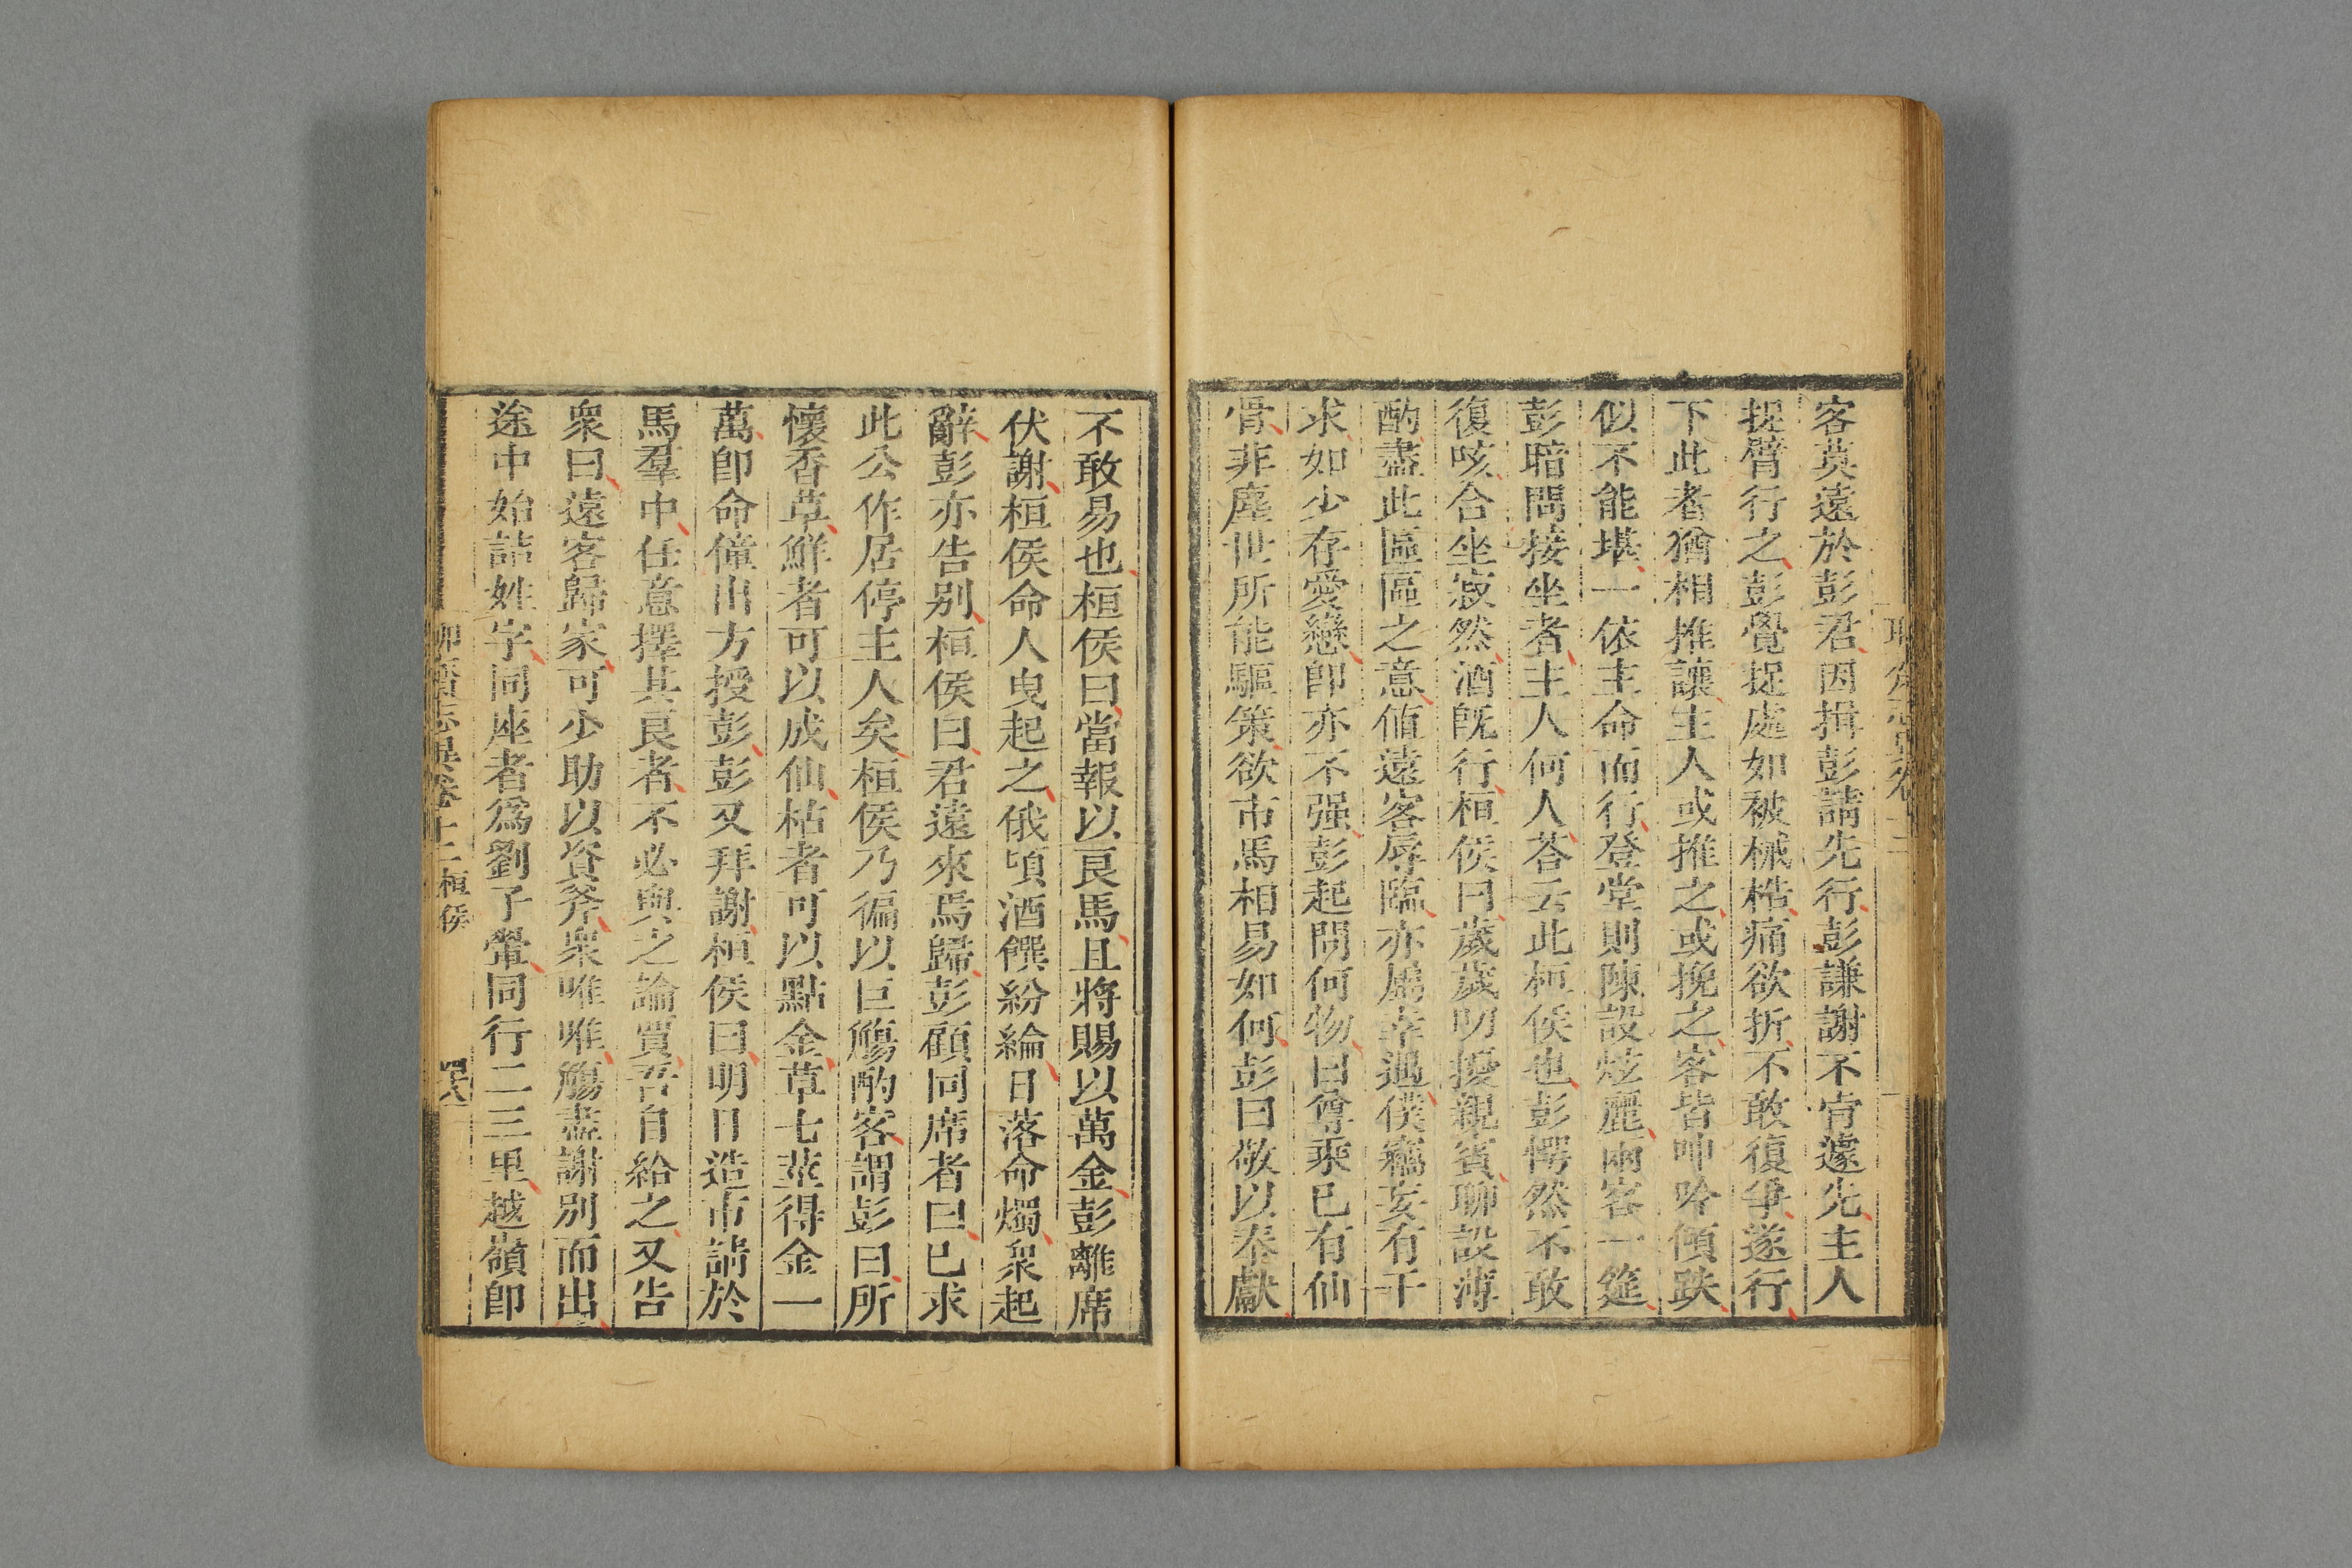 客莫遠於彭君因揖彭請先行彭謙謝不肯遽先主人
捉臂行之彭覺捉處如被械梏痛欲折不敢復爭遂行
下此者猶相推讓主人或推之或挽之客皆呻吟傾跌
似不能堪一依主命而行登堂則陳設炫麗兩客一筵
彭暗問接坐者主人何人荅云此桓侯也彭愕然不敢
復咳合坐寂然酒旣行桓侯曰歲歲叨擾親賓聊設薄
酌盡此區區之意値遠客辱臨亦屬幸遇僕竊妄有干
求如少存愛戀卽亦不强彭起問何物曰尊乘已有仙
骨非塵世所能驅策欲市馬相易如何彭曰敬以奉獻
不敢易也桓侯曰當報以良馬且將賜以萬金彭離席
伏謝桓侯命人曳起之俄頃酒饌紛綸日落命燭衆起
辭彭亦告别桓侯曰君遠來焉歸彭顧同席者曰已求
此公作居停主人矣桓侯乃徧以巨觴酌客謂彭曰所
懷香草鮮者可以成仙枯者可以點金草七莖得金一
萬卽命僮出方授彭彭又拜謝桓侯曰明日造市請於
馬羣中任意擇其良者不必與之論買吾自給之又告
衆曰遠客歸家可少助以資斧衆唯唯觴盡謝别而出
途中始詰姓字同座者爲劉子翬同行二三里越嶺卽
聊齋志異卷十二桓侯